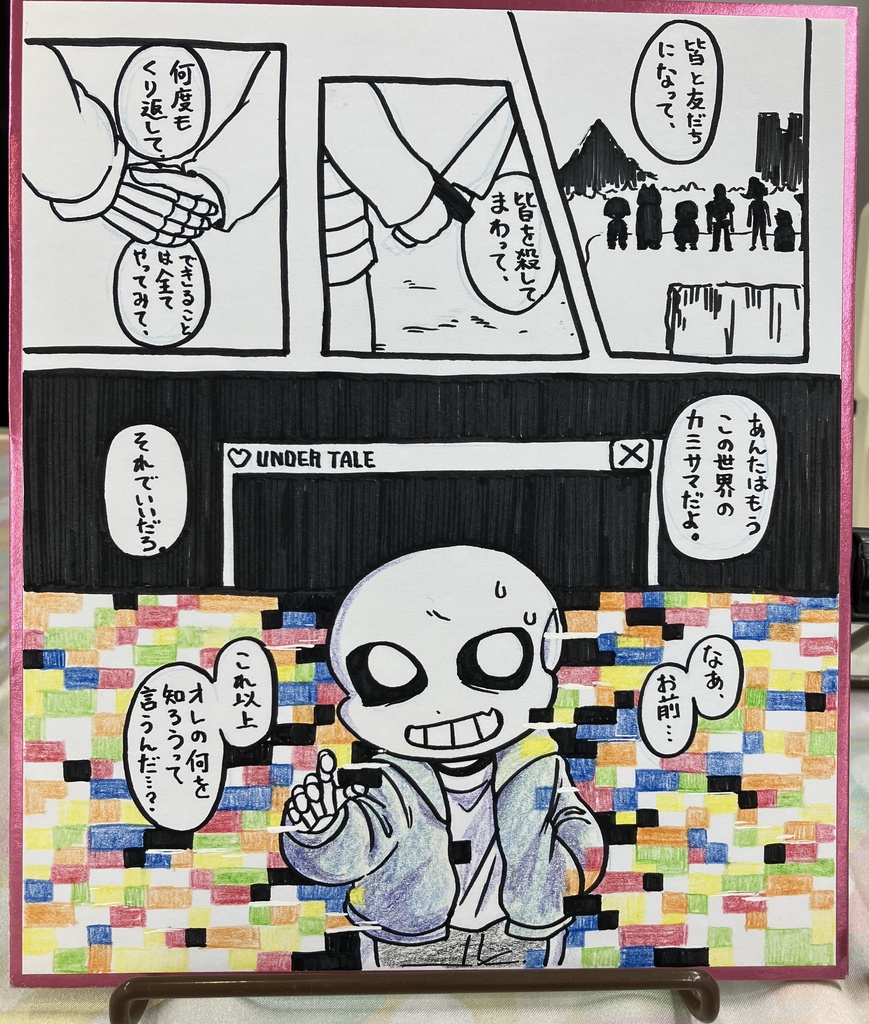 皆と友だち
になって、
皆を殺して
まわって、
何度も
くり返して、
できること
は全て
やってみて、
あんたはもう
この世界の
カミサマだよ。
UNDER TALE
それでいいだろ。
なあ、
お前…
これ以上
オレの何を
知ろうって
言うんだ…?